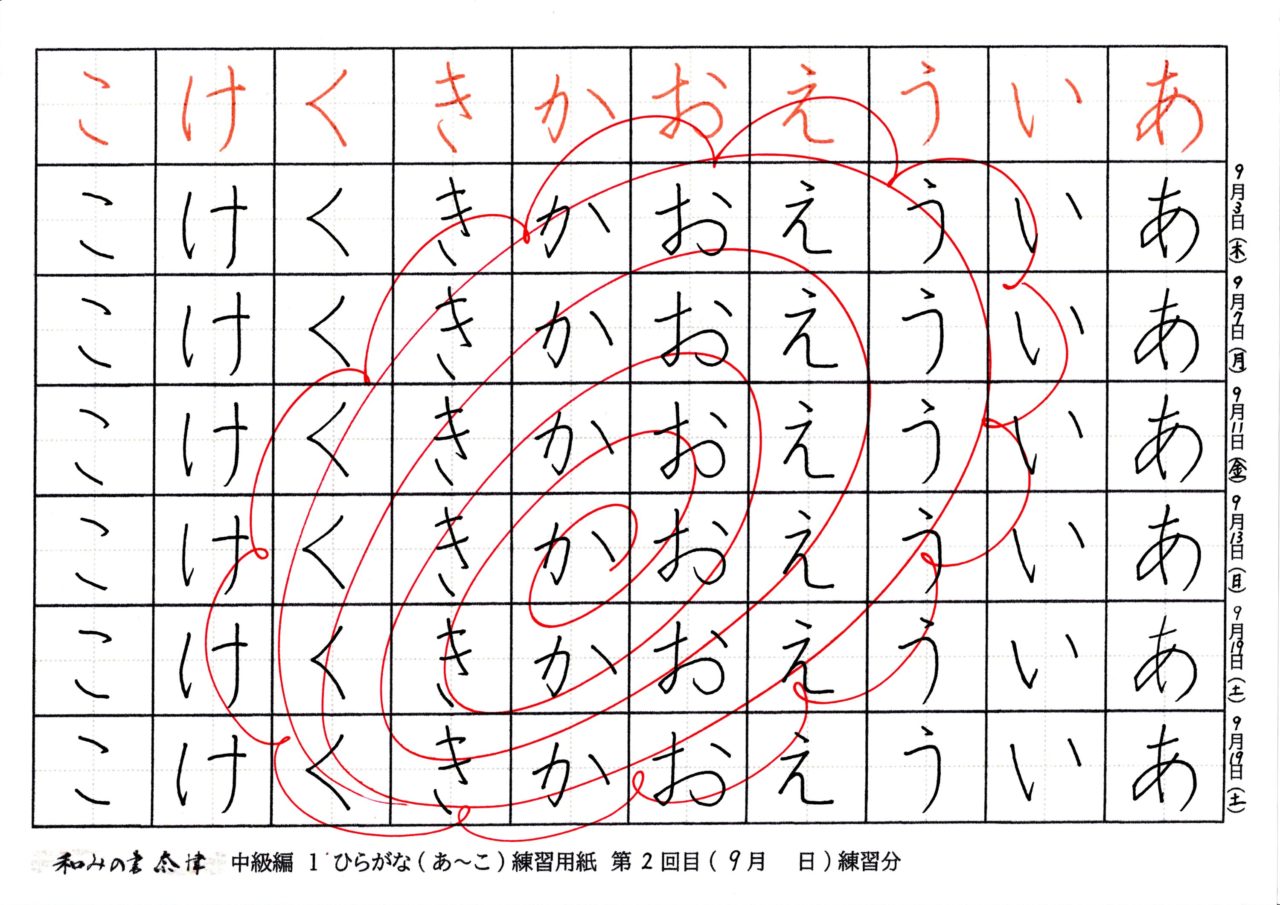 9月3日(木)
9月7日(月)
9月11日(金)
9月13日(日)
9月19日(土)
9月19日(土)
あああああああ
いいいいいいい
ううううううう
えええええええ
おおおおおおお
かかかかかかか
ききききききき
くくくくくくく
けけけけけけけ
こここここここ
和みの書 奈津 中級編 1 ひらがな(あ〜こ)練習用紙 第2回目(9月 日)練習分